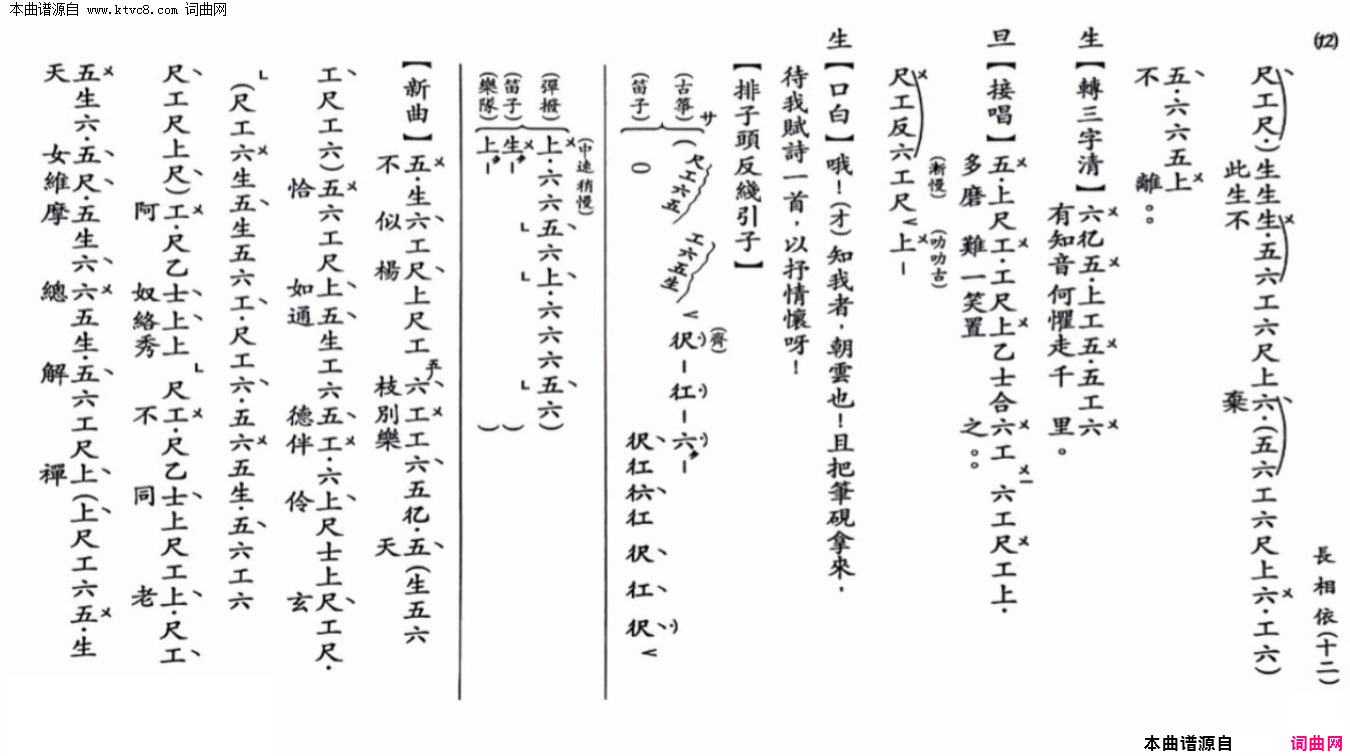 本曲谱源自 www.ktvc8.com 词曲网
(12)
長相依(十二)
尺工尺.)生生生.五六工六尺上六.(五六工六尺上六.工六)
此生不 棄
五.六六五上
不 離。。
生【轉三字清】六伬五.上工五.五工六
有知音何懼走千 里。
旦【接唱】五.上尺工.工尺上乙士合六工 六工尺工上.
多磨 難一笑置 之。。
(漸慢) (叻叻古)
尺工反六工尺 上—
生【口白】哦!(才)知我者,朝雲也!且把筆硯拿來,
待我賦詩一首,以抒情懷呀!
【排子頭反綫引子】
(古箏) サ (尺工六五 工六五生 (齊) 伬—仜—六—
(笛子) 〇 伬仜𠆾仜 伬、仜、伬
(中速稍慢)
(彈撥) 上.六六五六上.六六六五六)
(笛子) 生— )
(樂隊) 上— )
【新曲】五.生六工尺上尺工六工工六五伬.五(生五六
不 似楊 枝別樂 天
工尺工六)五六工尺上五生工六五工.六上尺士上尺工尺.
恰 如通 德伴 伶 玄
(尺工六生五生五六工.尺工六.五六五生.五六工六
尺工尺上尺)工.尺乙士上上 尺工.尺乙士上尺工上.尺工
阿 奴絡秀 不 同 老
五生六.五尺.五生六六五生.五六工尺上(上尺工六五.生
天 女維摩 總 解 禪
本曲谱源自 词曲网